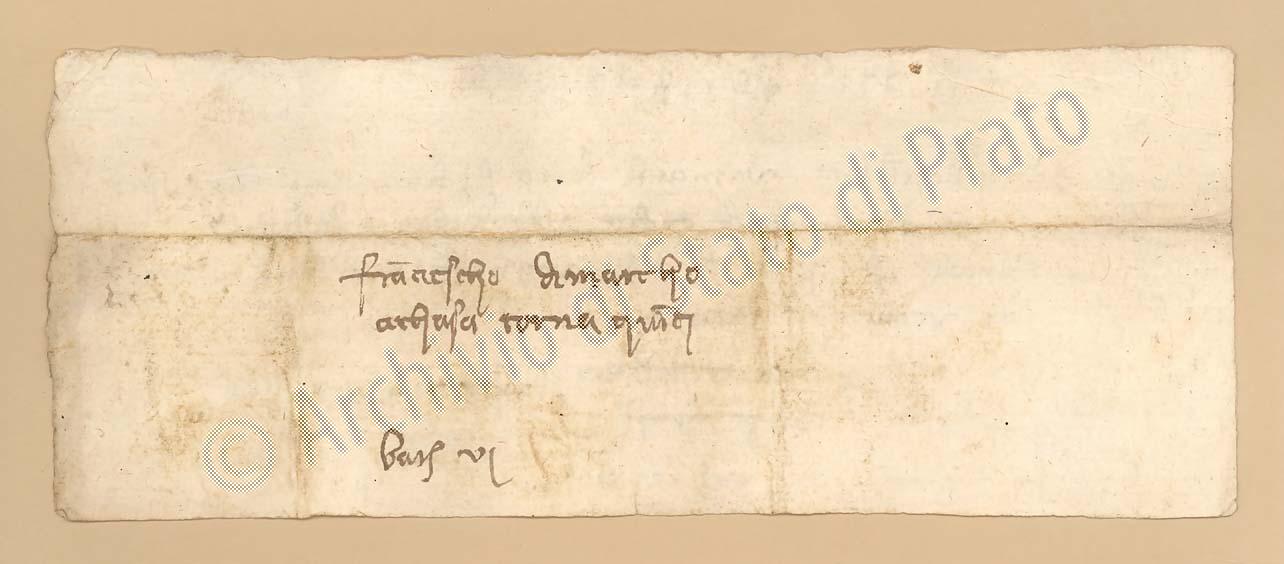 franciescho dmarcho
achasa torna quinci
barł vi
© Archivio di Stato di Prato